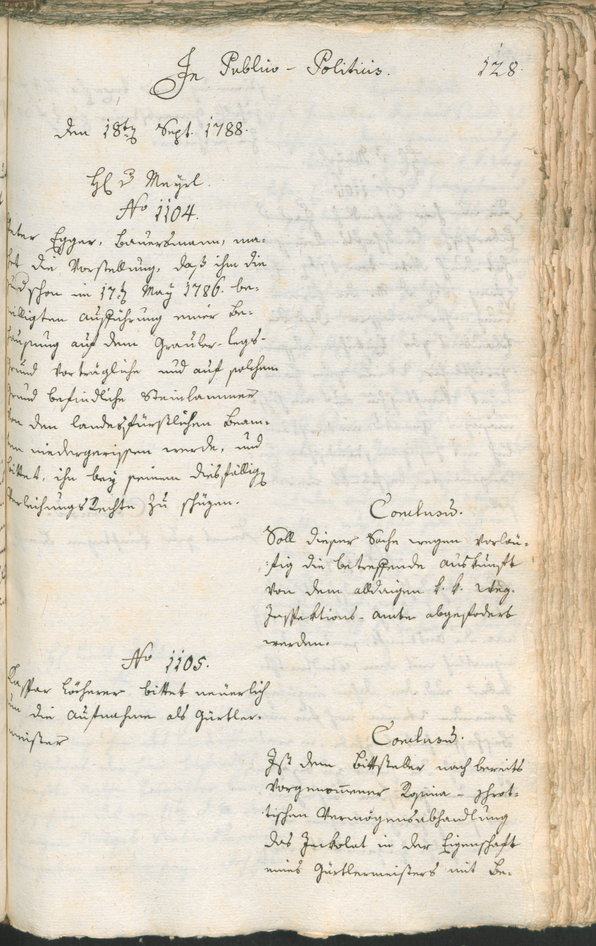 In Publico-Politicis.
128.
den 18t Sept. 1788.
H Mayrl.
No 1104.
Peter Egger, Bauersmann, ma-
chet die Vorstellung, daß ihm die
und schon im 17t May 1786. be-
willigten Ausführung einer Be-
hausung auf dem Grauler-legs-
grund vorträgliche und auf solchem
Grund befindliche Steinlammer
von den landesfürstlichen Beam-
ten niedergerissen werde, und
bittet, ihn bey seinem diesfällig
Verleihungs Rechte zu schüzen.
Conclusum.
Soll dieser Sache wegen vorläu-
fig die betreffende Auskunft
von dem alldaigen k. k. Weg-
Inspektions-Amte abgefodert
werden.
No 1105.
Kaspar Löcherer bittet neuerlich
um die Aufnahme als Gürtler-
meister
Conclusum.
Ist dem Bittsteller nach bereits
vorgenommener
tischen Vermögensabhandlung
das Inkolat in der Eigenschaft
eines Gürtlermeisters mit Be-